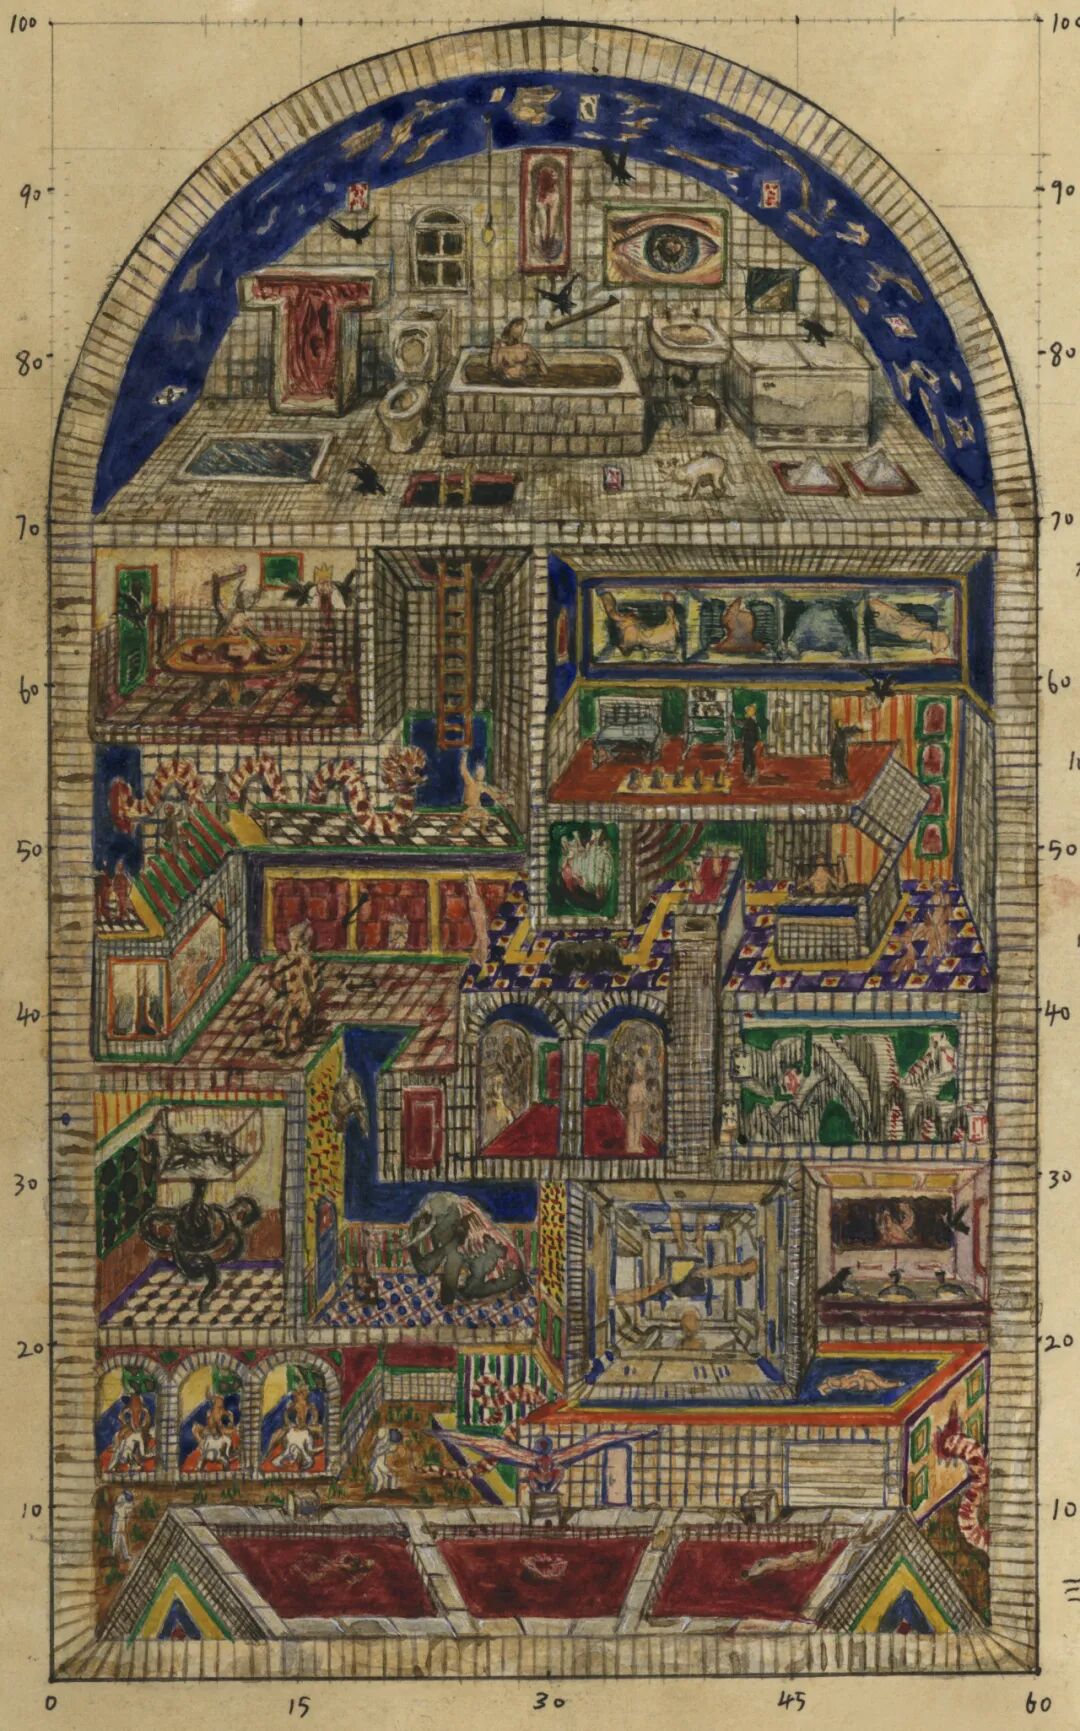 100 100
90 90
80 80
70 70
60 60
50 50
40 40
30 30
20 20
10 10
0 15 30 45 60